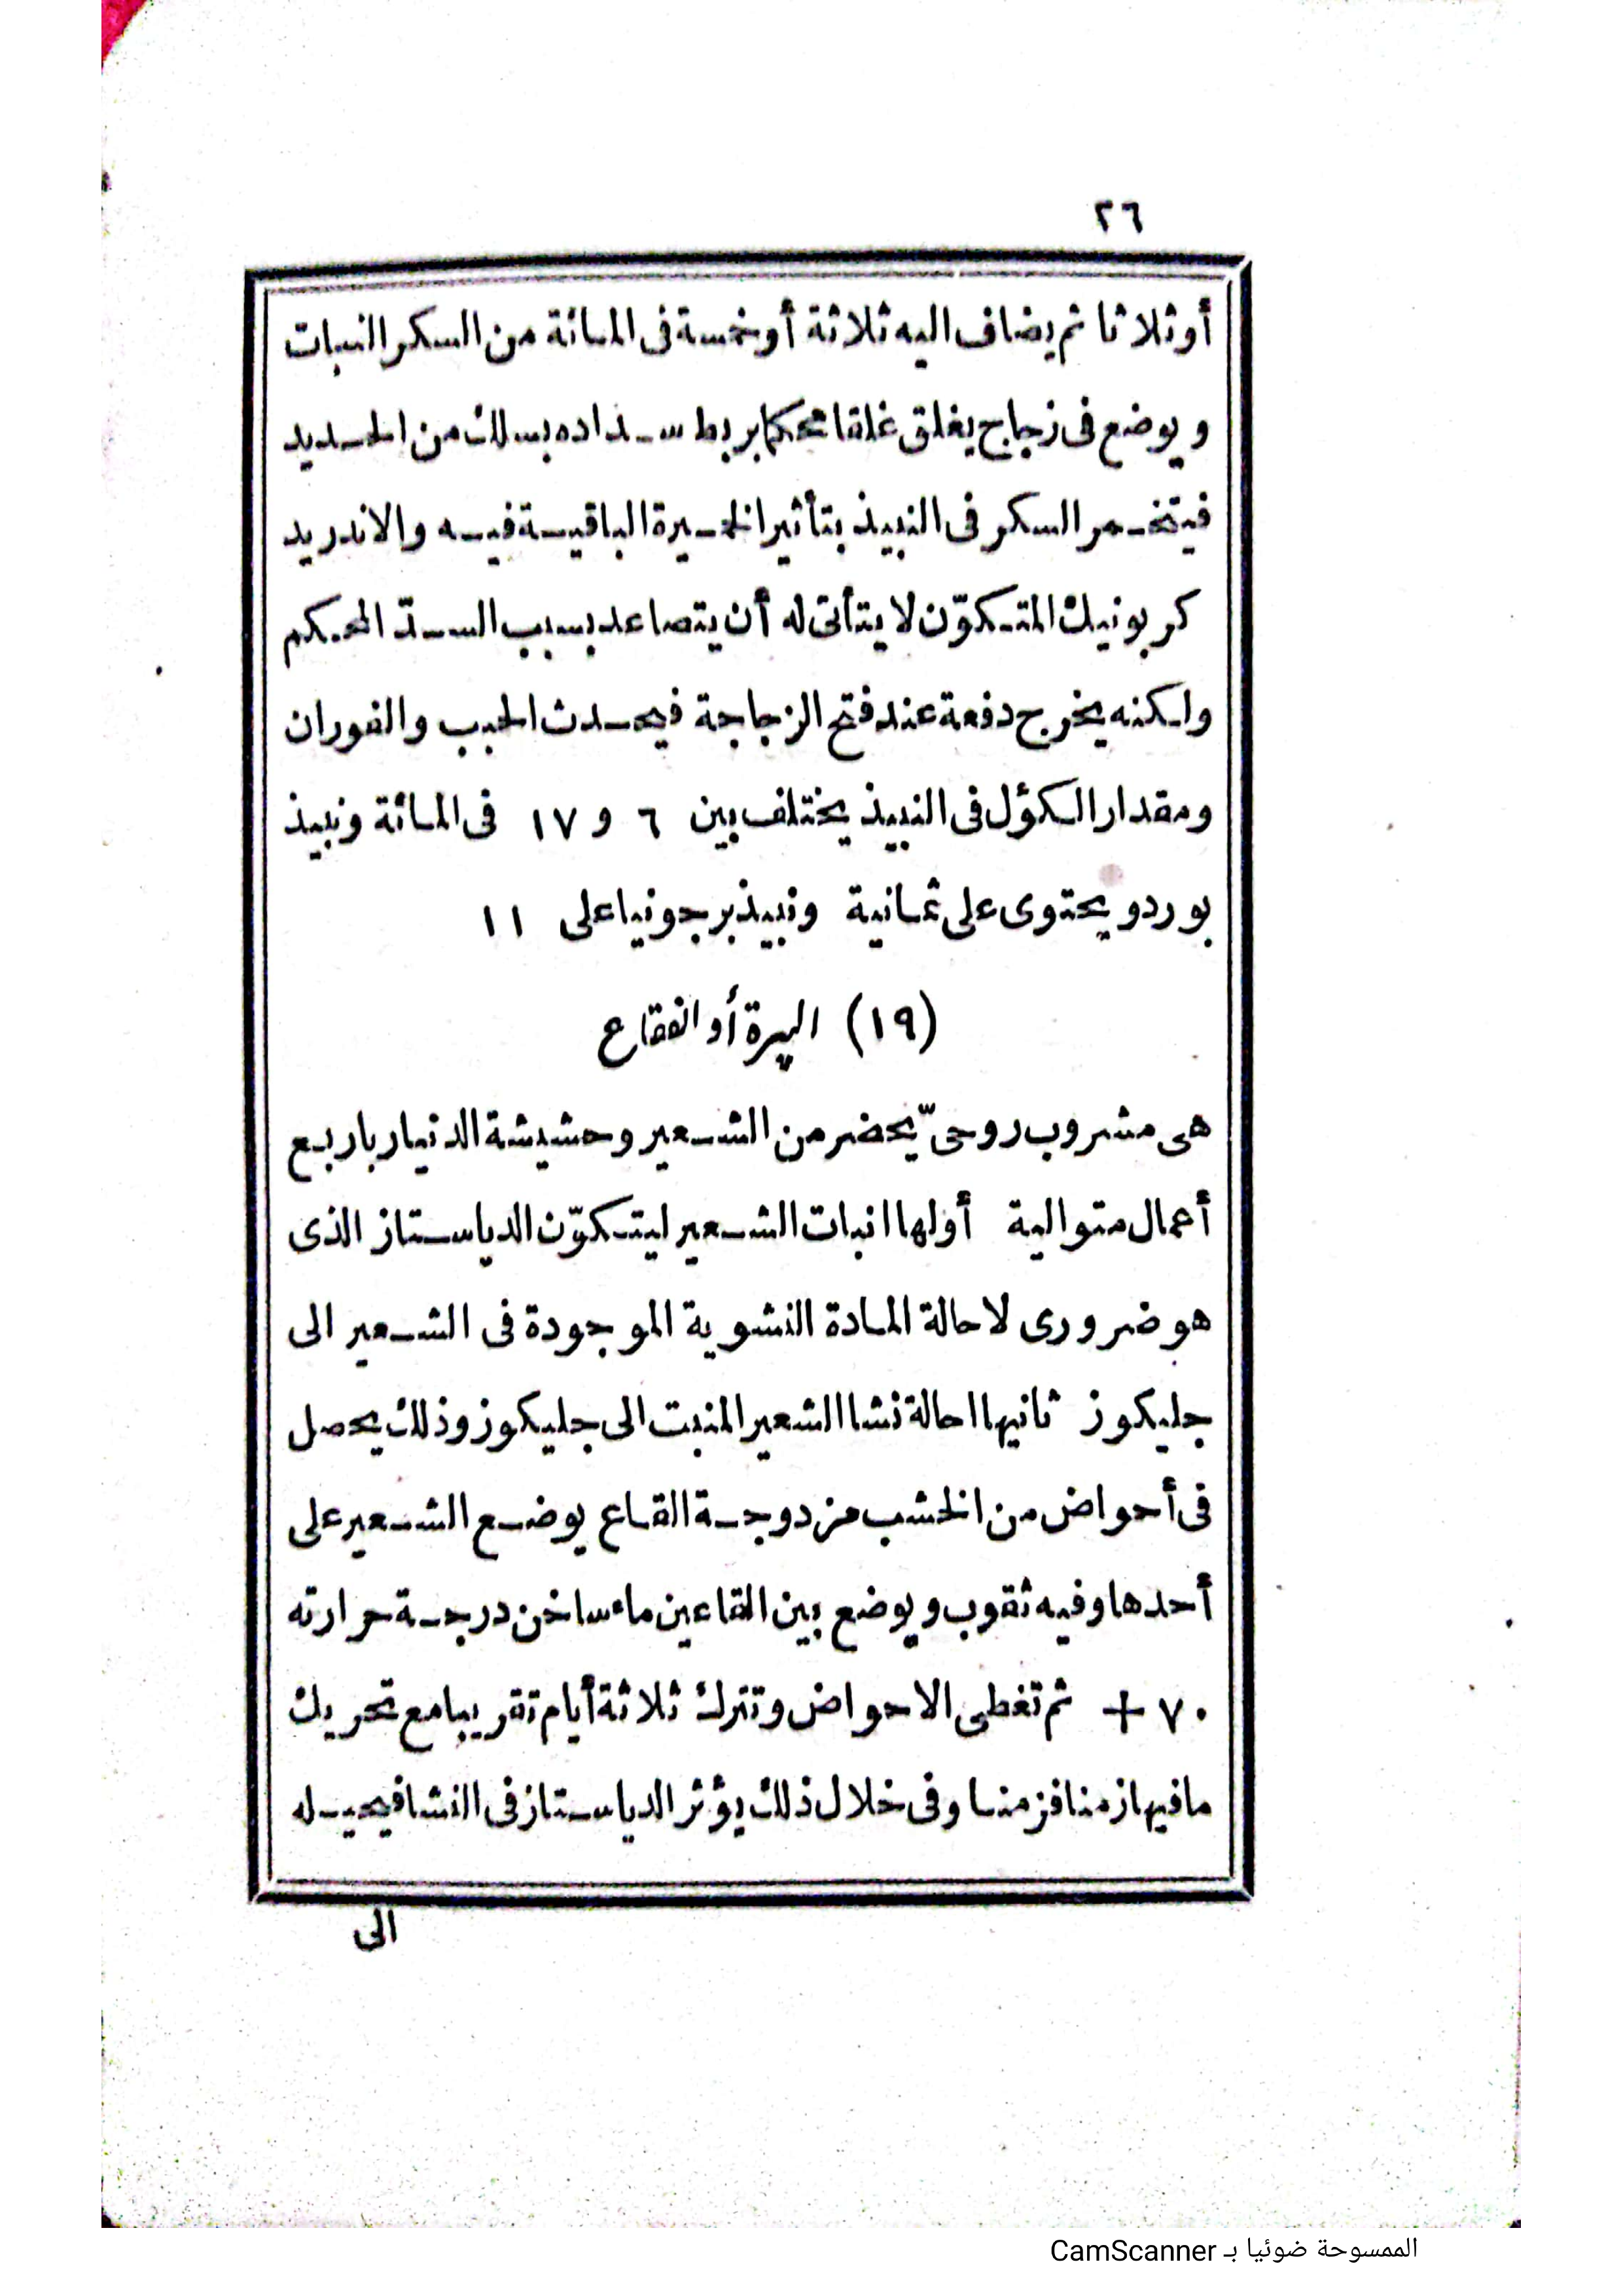 ٢٦
أو ثلاثا ثم يضاف اليه ثلاثة أو خمسة فى المائة من السكر النبات
ويوضع فى زجاج يغلق غلقا محكما بربط سداده بسلك من الحديد
فيتخمر السكر فى النبيذ بتأثير الخميرة الباقية فيه والاندريد
كربونيك المتكوّن لا يتأتى له أن يتصاعد بسبب السدّ المحكم
ولكنه يخرج دفعة عند فتح الزجاجة فيحدث الحبب والفوران
ومقدار الكؤل فى النبيذ يختلف بين ٦ و ١٧ فى المائة ونبيذ
بوردو يحتوى على ثمانية ونبيذ برجونيا على ١١
(١٩) البيرة أو الفقاع
هى مشروب روحىّ يحضر من الشعير وحشيشة الدنيار باربع
أعمال متوالية أولها انبات الشعير ليتكوّن الدياستاز الذى
هو ضرورى لاحالة المادة النشوية الموجودة فى الشعير الى
جليكوز ثانيها احالة نشا الشعير المنبت الى جليكوز وذلك يحصل
فى أحواض من الخشب مزدوجة القاع يوضع الشعير على
أحدها وفيه ثقوب ويوضع بين القاعين ماء ساخن درجة حرارته
٧٠ + ثم تغطى الاحواض وتترك ثلاثة أيام تقريبا مع تحريك
ما فيها زمنا فزمنا وفى خلال ذلك يؤثر الدياستاز فى النشا فيحيله
الى
الممسوحة ضوئيا بـ CamScanner